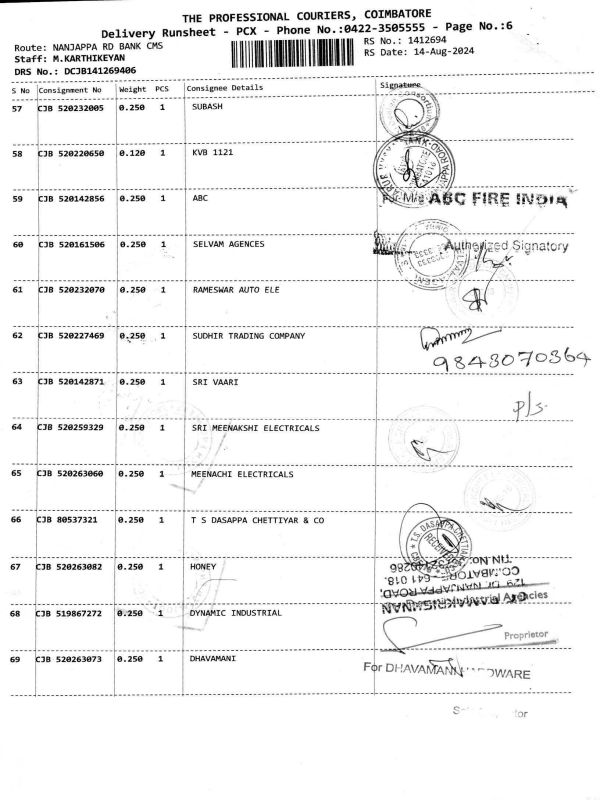 THE PROFESSIONAL COURIERS, COIMBATORE
Delivery Runsheet - PCX - Phone No.:0422-3505555 - Page No.:6
Route: NANJAPPA RD BANK CMS
RS No.: 1412694
Staff: M.KARTHIKEYAN
RS Date: 14-Aug-2024
DRS No.: DCJB141269406
S No Consignment No Weight PCS Consignee Details Signature
57 CJB 520232005 0.250 1 SUBASH
58 CJB 520220650 0.120 1 KVB 1121
59 CJB 520142856 0.250 1 ABC
For M/s ABC FIRE INDIA
60 CJB 520161506 0.250 1 SELVAM AGENCES
Authorized Signatory
61 CJB 520232070 0.250 1 RAMESWAR AUTO ELE
62 CJB 520227469 0.250 1 SUDHIR TRADING COMPANY
9843070364
63 CJB 520142871 0.250 1 SRI VAARI
P/s
64 CJB 520259329 0.250 1 SRI MEENAKSHI ELECTRICALS
65 CJB 520263060 0.250 1 MEENACHI ELECTRICALS
66 CJB 80537321 0.250 1 T S DASAPPA CHETTIYAR & CO
T.S. DASAPPA CHETTIAR
RECEIVED
67 CJB 520263082 0.250 1 HONEY
TIN No:
COIMBATORE - 641 018.
NANJAPPA ROAD,
RAMAKRISHNAN
68 CJB 519867272 0.250 1 DYNAMIC INDUSTRIAL
Industrial Agencies
Proprietor
69 CJB 520263073 0.250 1 DHAVAMANI
For DHAVAMANI HARDWARE